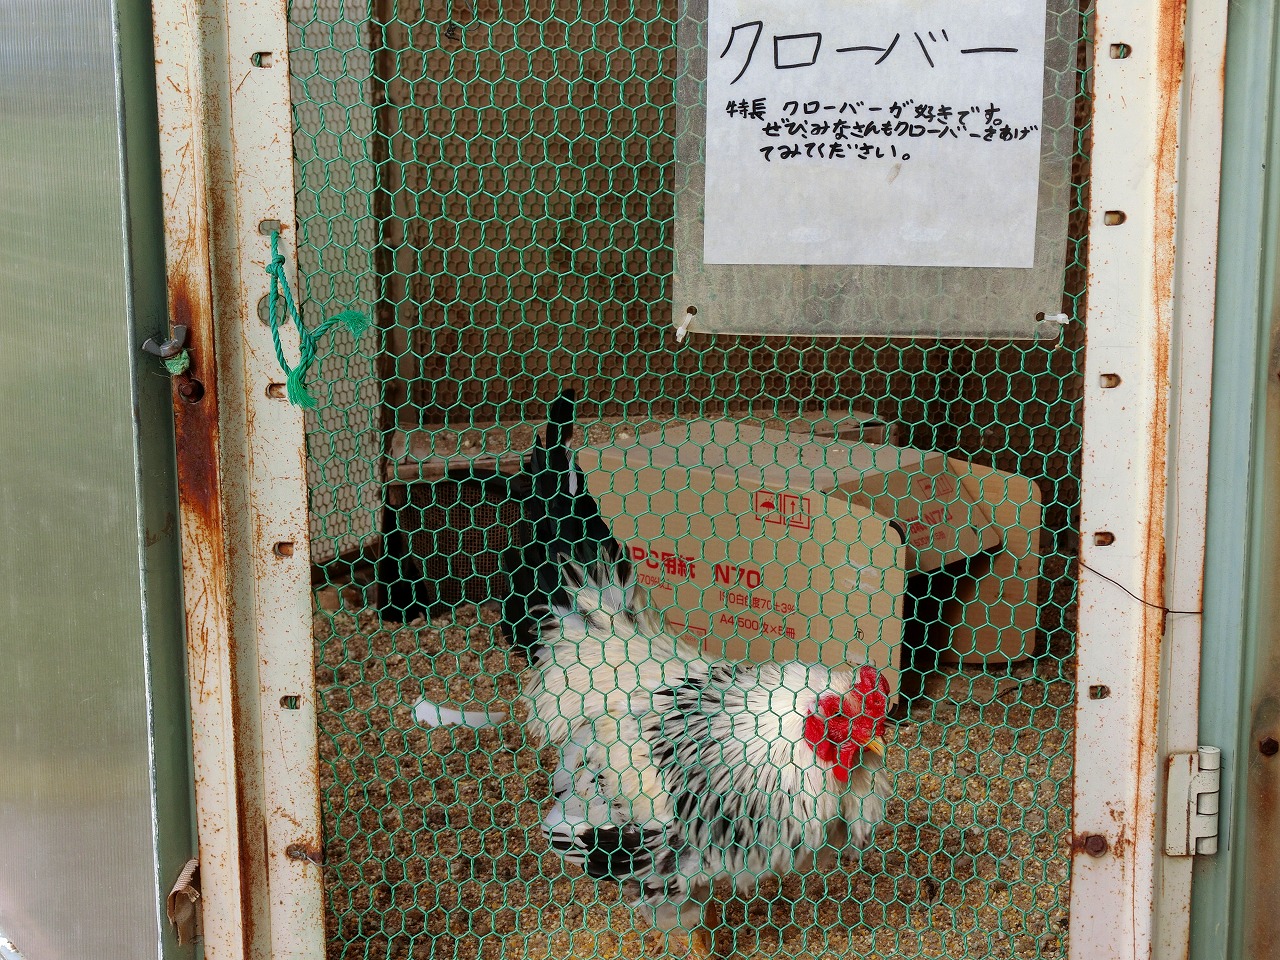 クローバー
特長 クローバーが好きです。
ぜひ、みなさんもクローバーをあげ
てみてください。
PC用紙 N70
ISO白色度70±3%
A4,500枚×5冊
N70